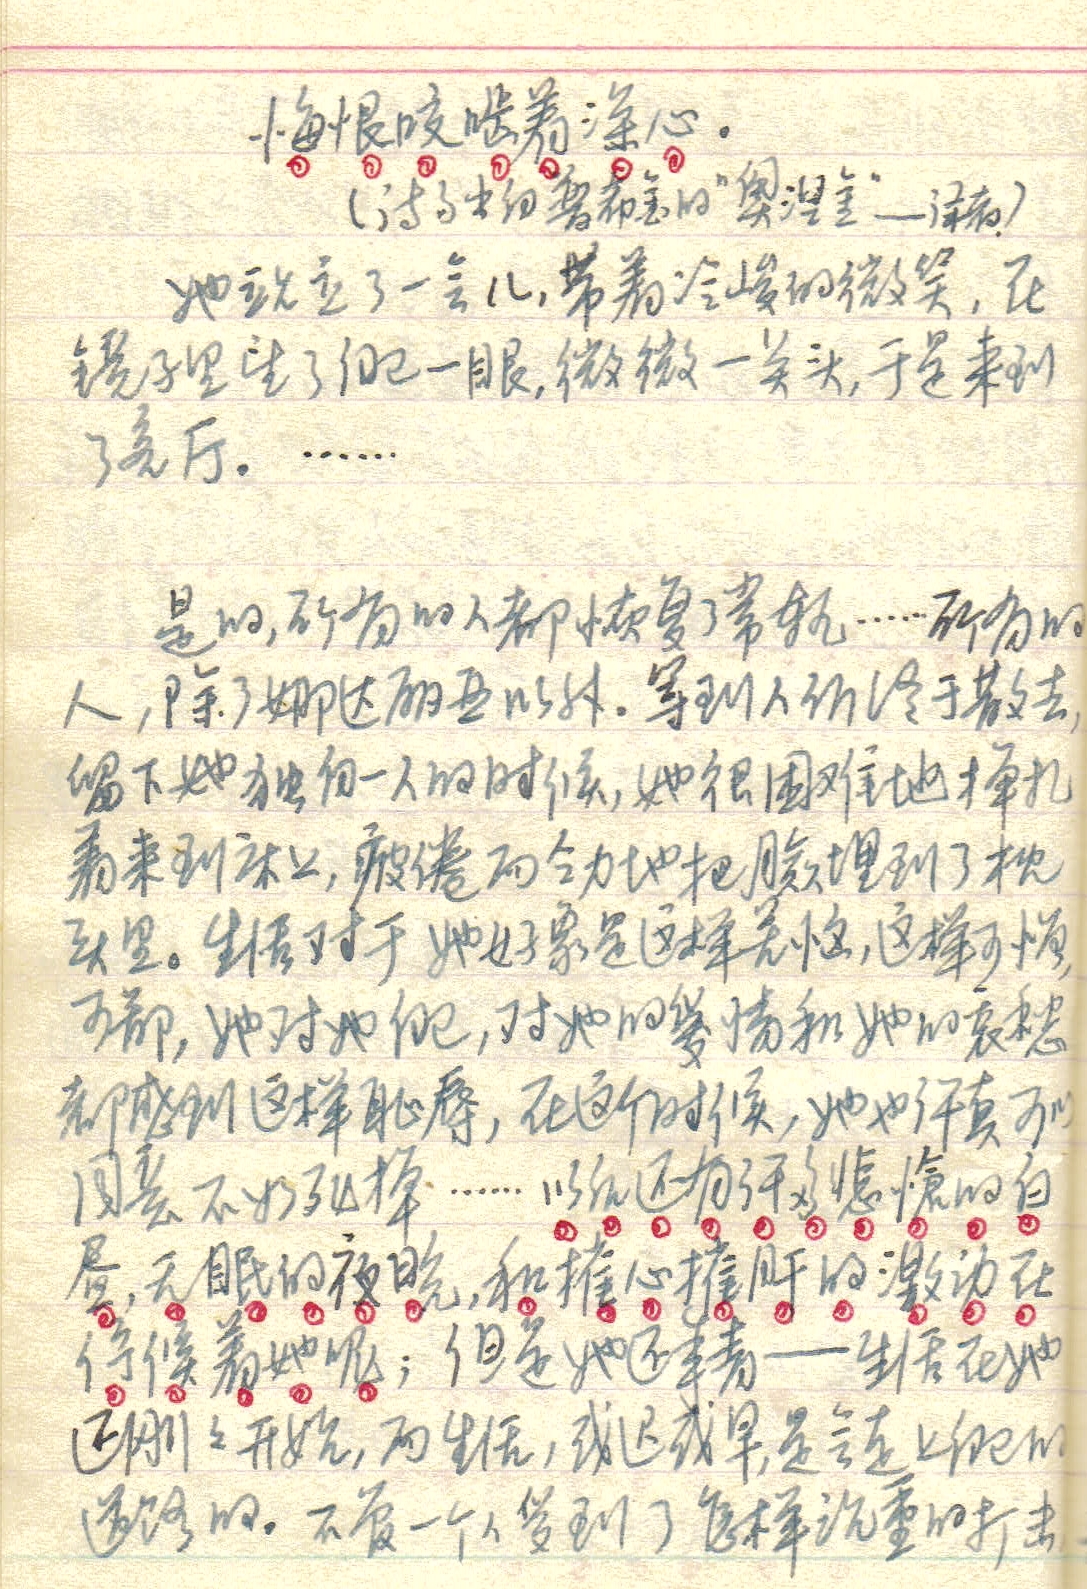 悔恨咬啮着深心。
(诗句出自普希金的"奥涅金"——译者)
她竚立了一会儿，带着冷峻的微笑，在
镜子里望了自己一眼，微微一点头，于是来到
了客厅。……
是的，所有的人都恢复了常轨……所有的
人，除了娜达丽亚以外。等到人们终于散去，
留下她独自一人的时候，她很困难地挣扎
着来到床上，疲倦而无力地把脸埋到了枕
头里。生活对于她好象是这样无味，这样可憎，
可鄙，她对她自己，对她的爱情和她的哀愁
都感到这样耻辱，在这个时候，她也许真可以
同意不如死掉……以后还有许多悲怆的白
昼，无眠的夜晚，和摧心摧肝的激动在
等候着她呢；但是她还年青——生活在她
还刚刚开始，而生活，或迟或早，是会走上自己的
道路的。不管一个人受到了怎样沉重的打击